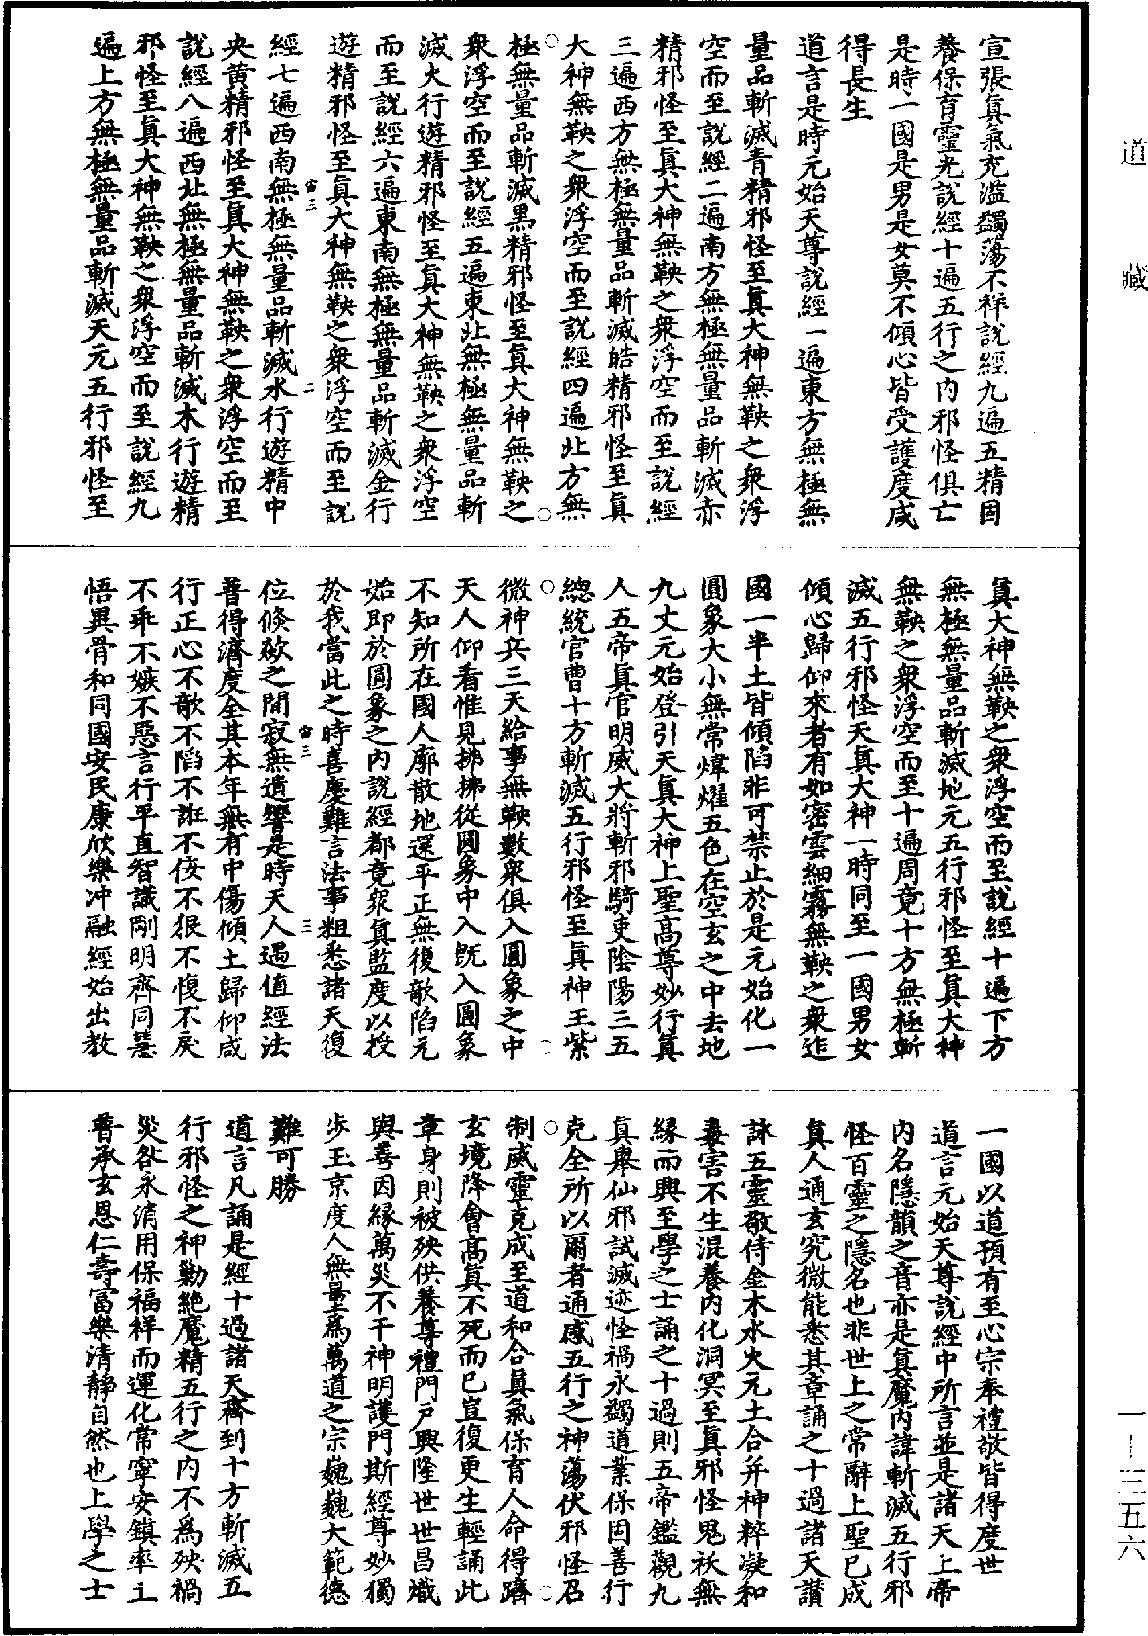 道藏
宣張真氣充溢蠲蕩不祥說經九遍五精固
養保育靈光說經十遍五行之內邪怪俱亡
是時一國是男是女莫不傾心皆受護度咸
得長生
道言是時元始天尊說經一遍東方無極無
量品斬滅青精邪怪至真大神無鞅之衆浮
空而至說經二遍南方無極無量品斬滅赤
精邪怪至真大神無鞅之衆浮空而至說經
三遍西方無極無量品斬滅皓精邪怪至真
大神無鞅之衆浮空而至說經四遍北方無
極無量品斬滅黑精邪怪至真大神無鞅之
衆浮空而至說經五遍東北無極無量品斬
滅火行遊精邪怪至真大神無鞅之衆浮空
而至說經六遍東南無極無量品斬滅金行
遊精邪怪至真大神無鞅之衆浮空而至說
宙三 二
經七遍西南無極無量品斬滅水行遊精中
央黃精邪怪至真大神無鞅之衆浮空而至
說經八遍西北無極無量品斬滅木行遊精
邪怪至真大神無鞅之衆浮空而至說經九
遍上方無極無量品斬滅天元五行邪怪至
真大神無鞅之衆浮空而至說經十遍下方
無極無量品斬滅地元五行邪怪至真大神
無鞅之衆浮空而至十遍周竟十方無極斬
滅五行邪怪天真大神一時同至一國男女
傾心歸仰來者有如密雲細霧無鞅之衆迮
國一半土皆傾陷非可禁止於是元始化一
圓象大小無常煒燿五色在空玄之中去地
九丈元始登引天真大神上聖高尊妙行真
人五帝真官明威大將斬邪騎吏陰陽三五
總統官曹十方斬滅五行邪怪至真神王紫
微神兵三天給事無鞅數衆俱入圓象之中
天人仰看惟見拂拂從圓象中入既入圓象
不知所在國人廓散地還平正無復欹陷元
始即於圓象之內說經都竟衆真監度以授
於我當此之時喜慶難言法事粗悉諸天復
宙三 三
位倏歘之間寂無遺響是時天人遇值經法
普得濟度全其本年無有中傷傾土歸仰咸
行正心不欹不陷不誑不佞不狠不愎不戾
不乖不嫉不惡言行平直智識剛明齊同慧
悟異骨和同國安民康欣樂冲融經始出教
一國以道預有至心宗奉禮敬皆得度世
道言元始天尊說經中所言並是諸天上帝
內名隱韻之音亦是真魔內諱斬滅五行邪
怪百靈之隱名也非世上之常辭上聖已成
真人通玄究微能悉其章誦之十過諸天讚
詠五靈敬侍金木水火元土合并神粹凝和
毒害不生混養內化洞冥至真邪怪鬼祅無
緣而興至學之士誦之十過則五帝鑑觀九
真舉仙邪試滅迹怪禍永蠲道業保固善行
克全所以爾者通感五行之神蕩伏邪怪召
制威靈克成至道和合真氣保育人命得躋
玄境降會高真不死而已豈復更生輕誦此
章身則被殃供養尊禮門戶興隆世世昌熾
與善因緣萬災不干神明護門斯經尊妙獨
步玉京度人無量爲萬道之宗巍巍大範德
難可勝
道言凡誦是經十過諸天齊到十方斬滅五
行邪怪之神勦絕魔精五行之內不爲殃禍
災咎永消用保福祥而運化常寧安鎮率土
普承玄恩仁壽富樂清靜自然也上學之士
一—三五六